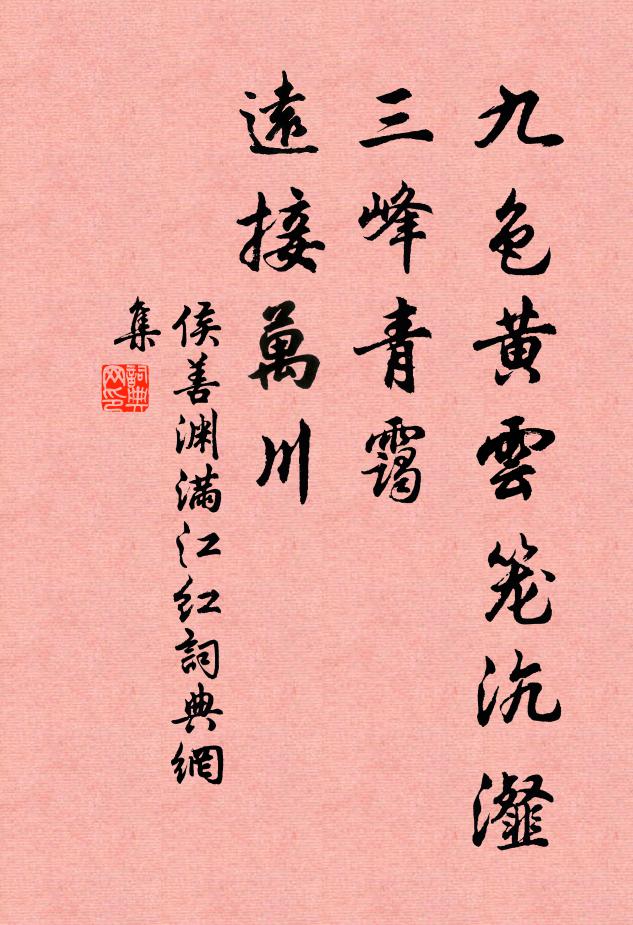 九色黄雲笼沆瀣
三峰青靄
遠接萬川
侯善渊满江红詞典網
集
詞典
网印